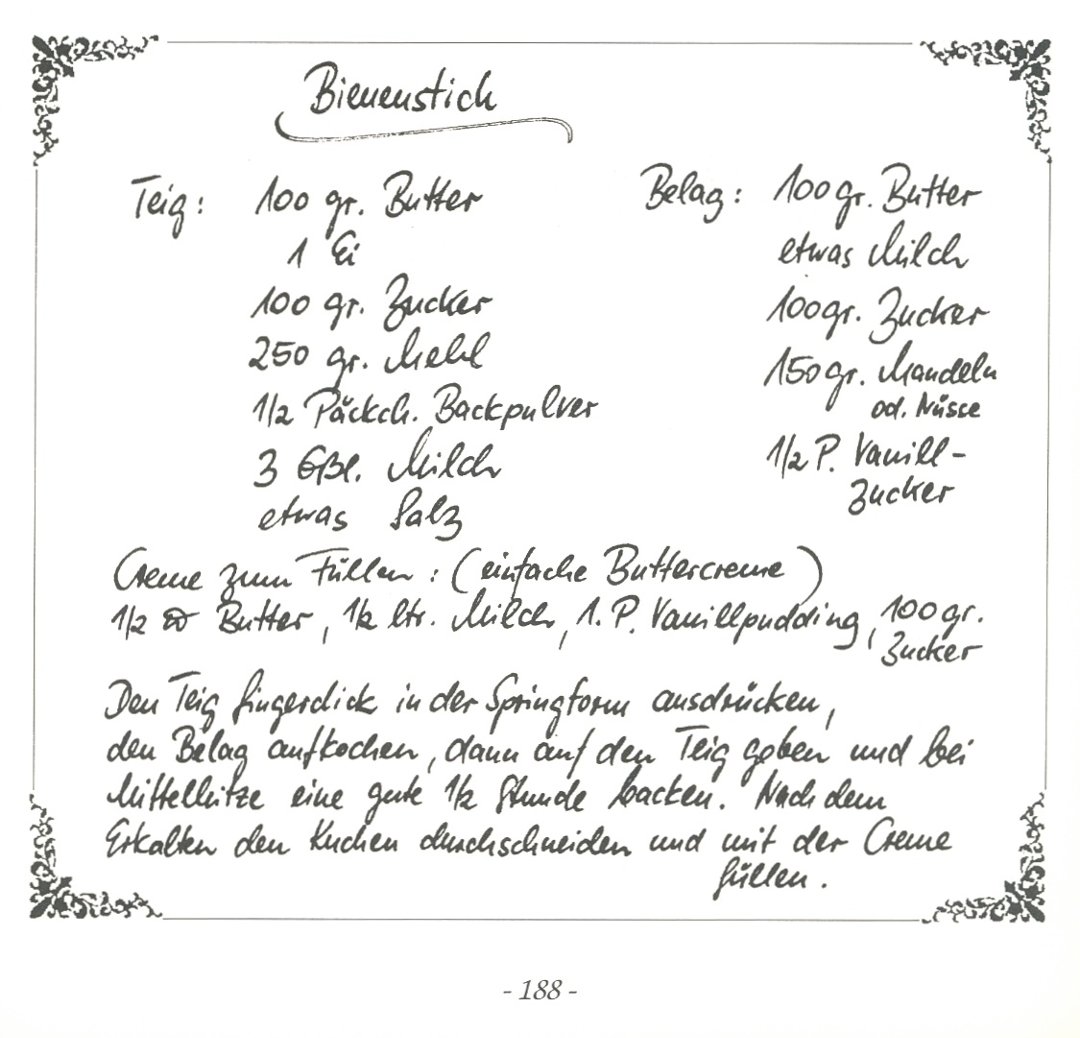 Bienenstich
Teig: 100 gr. Butter
1 Ei
100 gr. Zucker
250 gr. Mehl
1/2 Päckch. Backpulver
3 Eßl. Milch
etwas Salz
Belag: 100 gr. Butter
etwas Milch
100 gr. Zucker
150 gr. Mandeln
od. Nüsse
1/2 P. Vanill-
zucker
Creme zum Füllen: (einfache Buttercreme)
1/2 ℔ Butter, 1/2 ltr. Milch, 1. P. Vanillpudding, 100 gr.
Zucker
Den Teig fingerdick in der Springform ausdrücken,
den Belag aufkochen, dann auf den Teig geben und bei
Mittelhitze eine gute 1/2 Stunde backen. Nach dem
Erkalten den Kuchen durchschneiden und mit der Creme
füllen.
- 188 -